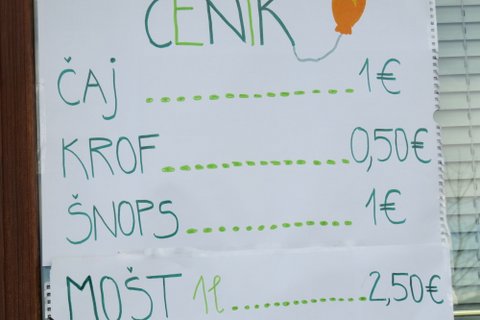 CENIK
ČAJ ............ 1€
KROF ............... 0,50€
ŠNOPS ............ 1€
MOŠT 1l ............... 2,50€